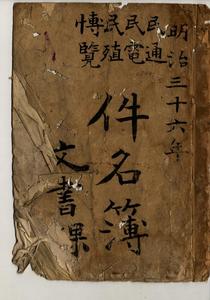 明治三十六年
民通
民電
民殖
博覧
件名簿
文書課